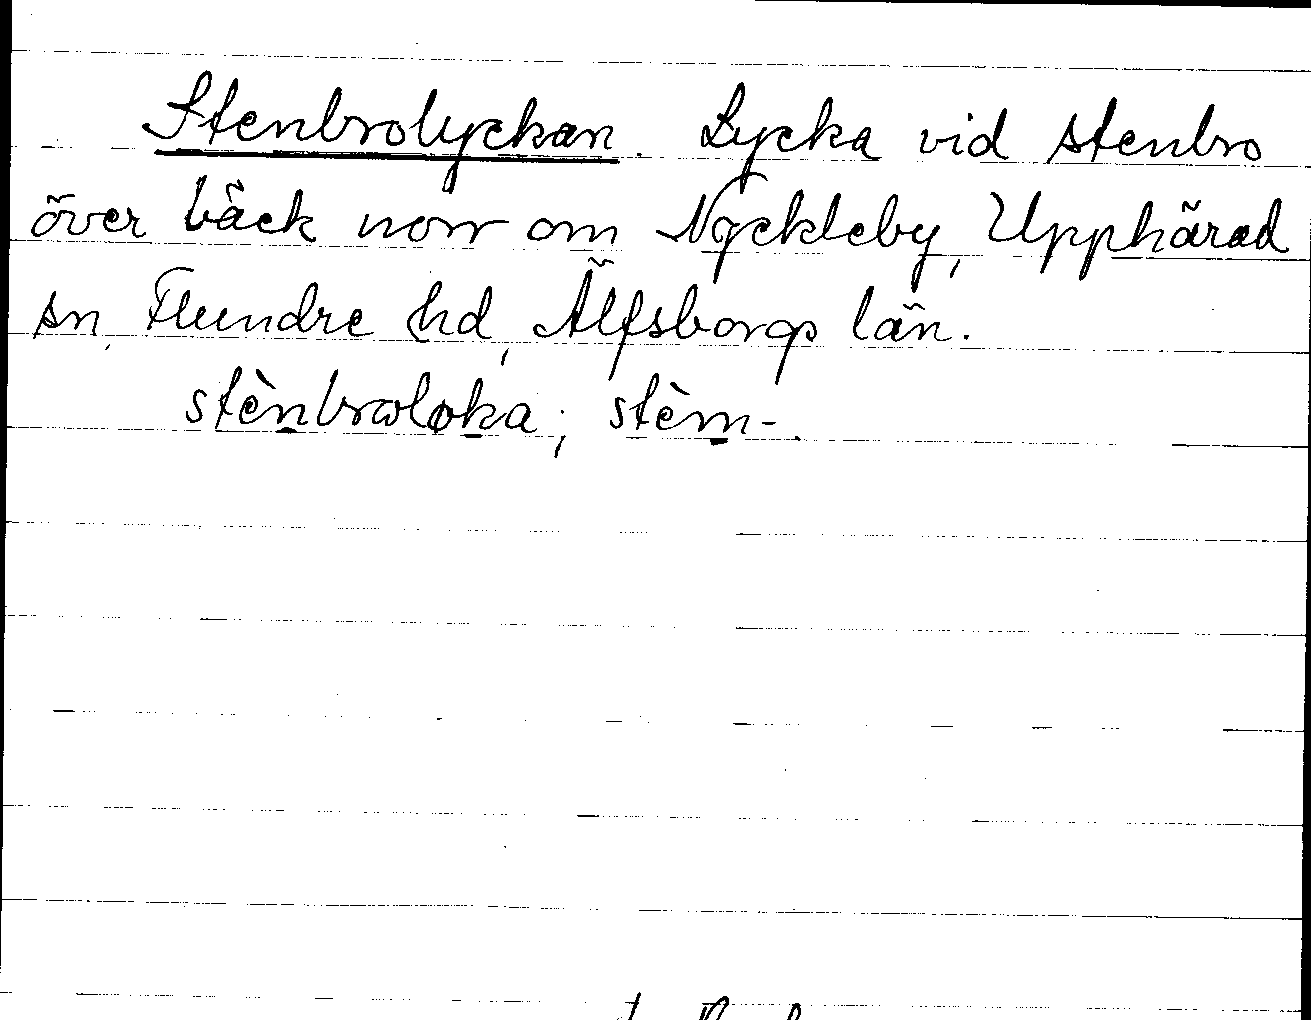 Stenbrolyckan. Lycka vid stenbro
över bäck norr om Nyckleby, Upphärad
sn, Flundre hd, Älfsborgs län.
stènbroloka; stèm-.